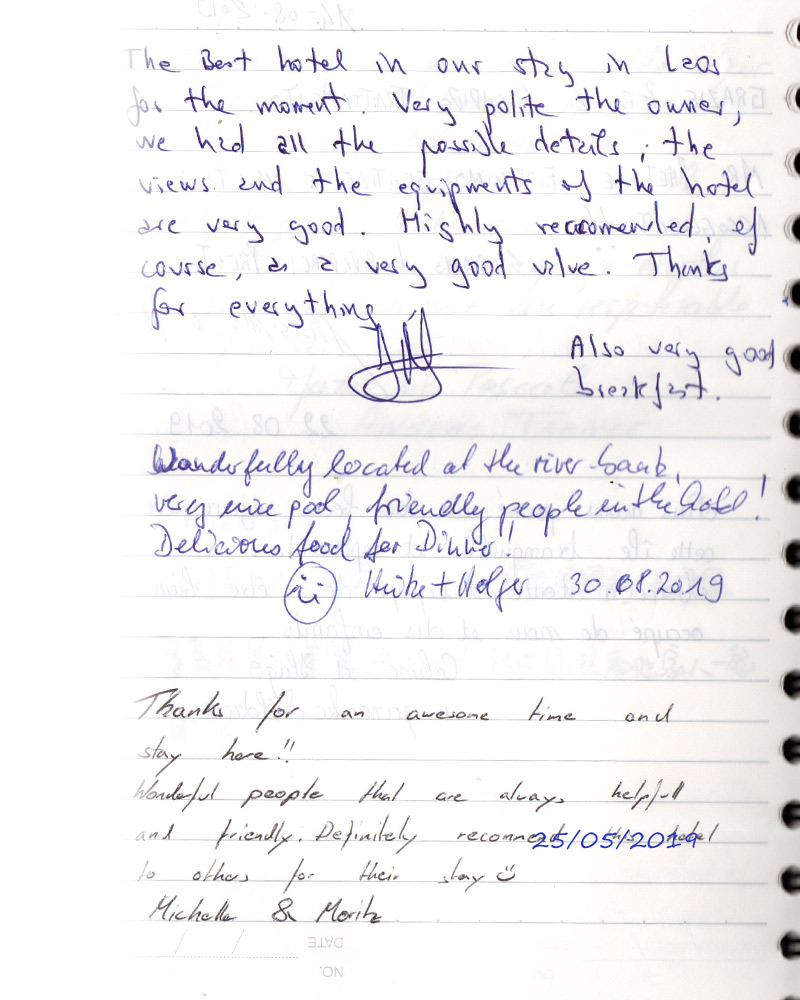 The Best hotel in our stay in Laos
for the moment. Very polite the owner,
we had all the possible details, the
views and the equipments of the hotel
are very good. Highly reccomended, of
course, as a very good value. Thanks
for everything
Also very good
breakfast.
Wonderfully located at the river bank,
very nice pool, friendly people in the hotel!
Delicious food for Dinner!!
Heike + Holger 30.08.2019
Thanks for an awesome time and
stay here!!
Wonderful people that are always helpfull
and friendly. Definitely recommend this hotel
25/05/2019
to others for their stay
Michelle & Moritz
DATE
NO.